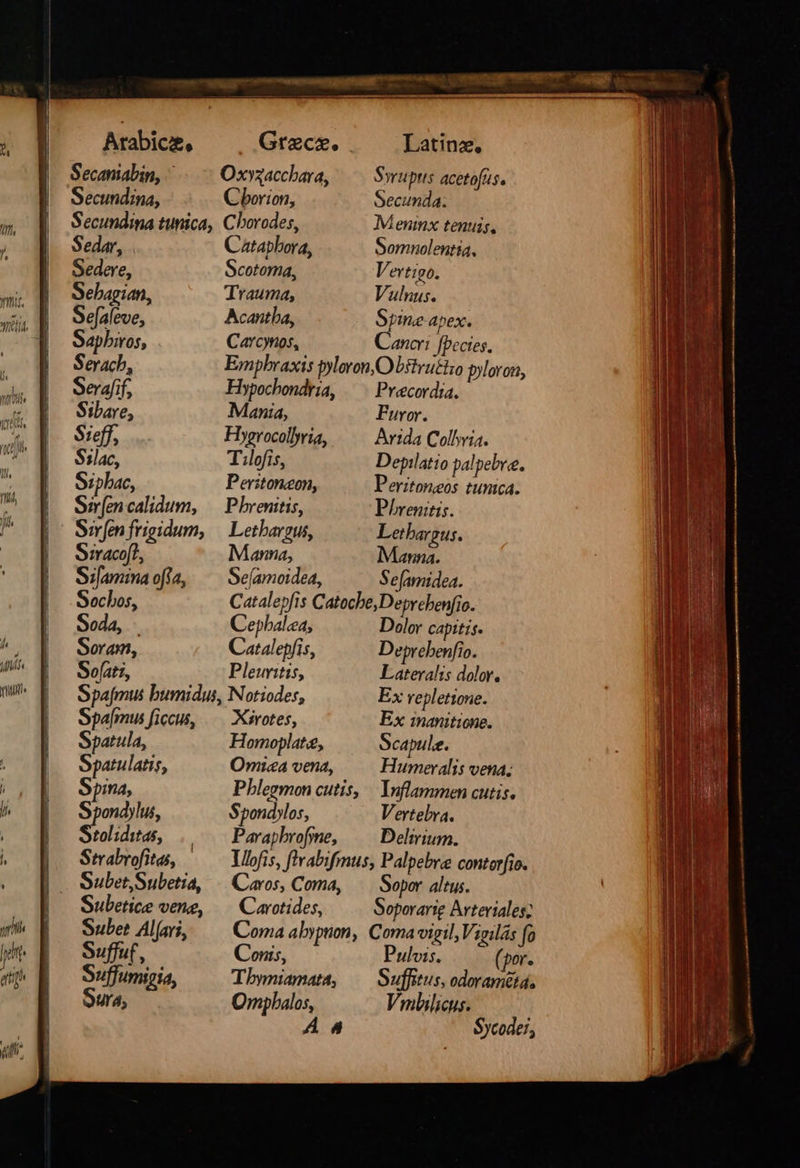 Arabicæ, Græcæ. Latinæ.
Secaniabin, Oxyzacchara, Syrupus acetoſus.
Secundina, Chorion, Secunda.
Secundina tunica, Chorodes, Meninx tenuis,
Sedar, Cataphora, Somnolentia.
Sedere, Scotoma, Vertigo.
Sehagian, Trauma, Vulnus.
Seſaleve, Acantha, Spinæ apex.
Saphiros, Carcynos, Cancri ſpecies.
Serach, Emphraxis pyloron, Obstructio pyloron,
Seraſif, Hypochondria, Præcordia.
Sibare, Mania, Furor.
Sieff, Hygrocollyria, Arida Collyria.
Silac, Tiloſis, Depilatio palpebræ.
Siphac, Peritonæon, Peritonæos tunica.
Sirſen calidum, Phrenitis, Phrenitis.
Sirſen frigidum, Lethargus, Lethargus.
Siracoſt, Manna, Manna.
Siſamina oſſa, Seſamoidea, Seſamidea.
Sochos, Catalepſis Catoche, Deprehenſio.
Soda, Cephalæa, Dolor capitis.
Soram, Catalepſis, Deprehenſio.
Soſati, Pleuritis, Lateralis dolor.
Spaſmus humidus, Notiodes, Ex repletione.
Spaſmus ſiccus, Xirotes, Ex inanitione.
Spatula, Homoplatæ, Scapulæ.
Spatulatis, Omiæa vena, Humeralis vena.
Spina, Phlegmon cutis, Inflammen cutis.
Spondylus, Spondylos, Vertebra.
Stoliditas, Paraphroſyne, Delirium.
Strabroſitas, Illoſis, ſtrabiſmus, Palpebræ contorſio.
Subet, Subetia, Caros, Coma, Sopor altus.
Subetice venæ, Carotides, Soporariæ Arteriales.
Subet Alſari, Coma ahypnon, Coma vigil, Vigilās ſo
Suffuf, Conis, Pulvis. (por.
Suffumigia, Thymiamata, Suffitus, odoramēta.
Sura, Omphalos, Vmbilicus.
A a Sycodei,